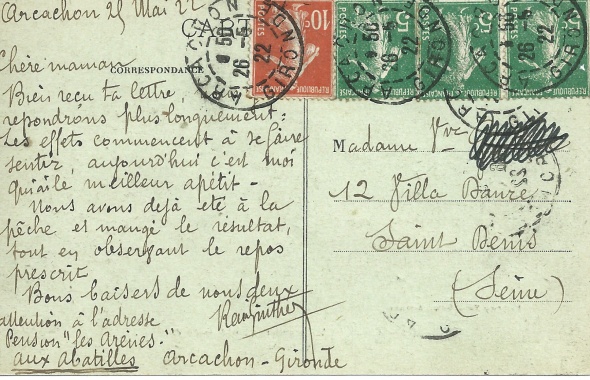 Arcachon 25 Mai 22
CARTE
CORRESPONDANCE
Chère maman
Bien reçu ta lettre,
repondrons plus longuement:
Les effets commencent à se faire
sentir, aujourd'hui c'est moi
qui ai le meilleur apétit -
Nous avons dejà eté à la
pêche et mangé le résultat,
tout en observant le repos
prescrit
Bons baisers de nous deux
attention à l'adresse
Pension "les Arènes."
aux abatilles Arcachon - Gironde
Madame Vve
12 Villa
Saint Denis
(Seine)
10c
POSTES
REPUBLIQUE FRANÇAISE
5c
POSTES
REPUBLIQUE FRANÇAISE
5c
POSTES
REPUBLIQUE FRANÇAISE
5c
POSTES
REPUBLIQUE FRANÇAISE
26 -5
22
GIRONDE